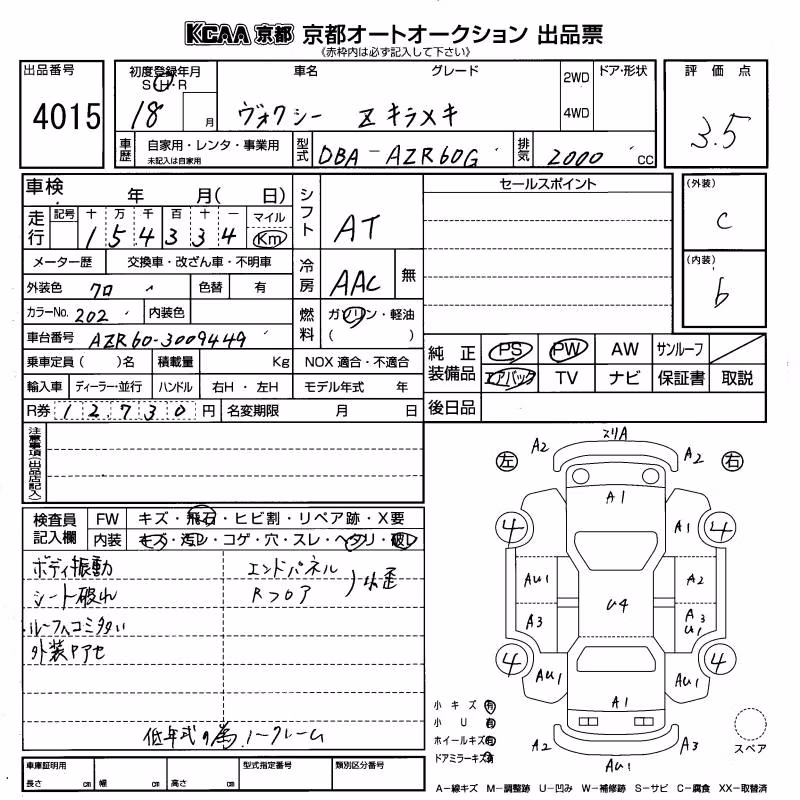 KCAA 京都 京都オートオークション 出品票
《赤枠内は必ず記入して下さい》
出品番号 初度登録年月 車名 グレード 2WD ドア・形状 評価点
S・H・R
4015 18 月 ヴォクシー Z キラメキ 4WD 3.5
車歴 自家用・レンタ・事業用 未記入は自家用 型式 DBA-AZR60G 排気 2000 CC
車検 年 月( 日) シフト AT セールスポイント (外装) C
走行 記号 十 万 千 百 十 一 マイル
1 5 4 3 3 4 Km
メーター歴 交換車・改ざん車・不明車 冷房 AAC 無 (内装) b
外装色 クロ 色替 有
カラーNo. 202 内装色 燃料 ガソリン・軽油
( )
車台番号 AZR60-3009449
乗車定員 ( )名 積載量 Kg NOX 適合・不適合 純正装備品 PS PW AW サンルーフ
輸入車 ディーラー・並行 ハンドル 右H・左H モデル年式 年 エアバック TV ナビ 保証書 取説
R券 1 2 7 3 0 円 名変期限 月 日 後日品
注意事項(出品店記入)
検査員記入欄 FW キズ・飛石・ヒビ割・リペア跡・X要
内装 キズ・汚レ・コゲ・穴・スレ・ヘタリ・破レ
ボディ振動 エンドパネル
シート破れ Rフロア )小歪
ルーフ凹コミ多い
外装アセ
低年式の為ノークレーム
車庫証明用 型式指定番号 類別区分番号
長さ cm 幅 cm 高さ cm
スリA
A2 A2
左 右
A1
4 A1 4
AU1 A2
U4
A3 A3 U1
4 4
AU1 AU1
A1
A2 A3
AU1
小キズ 有
小U 有
ホイールキズ 有
ドアミラーキズ 済
スペア
A−線キズ M−調整跡 U−凹み W−補修跡 S−サビ C−腐食 XX−取替済